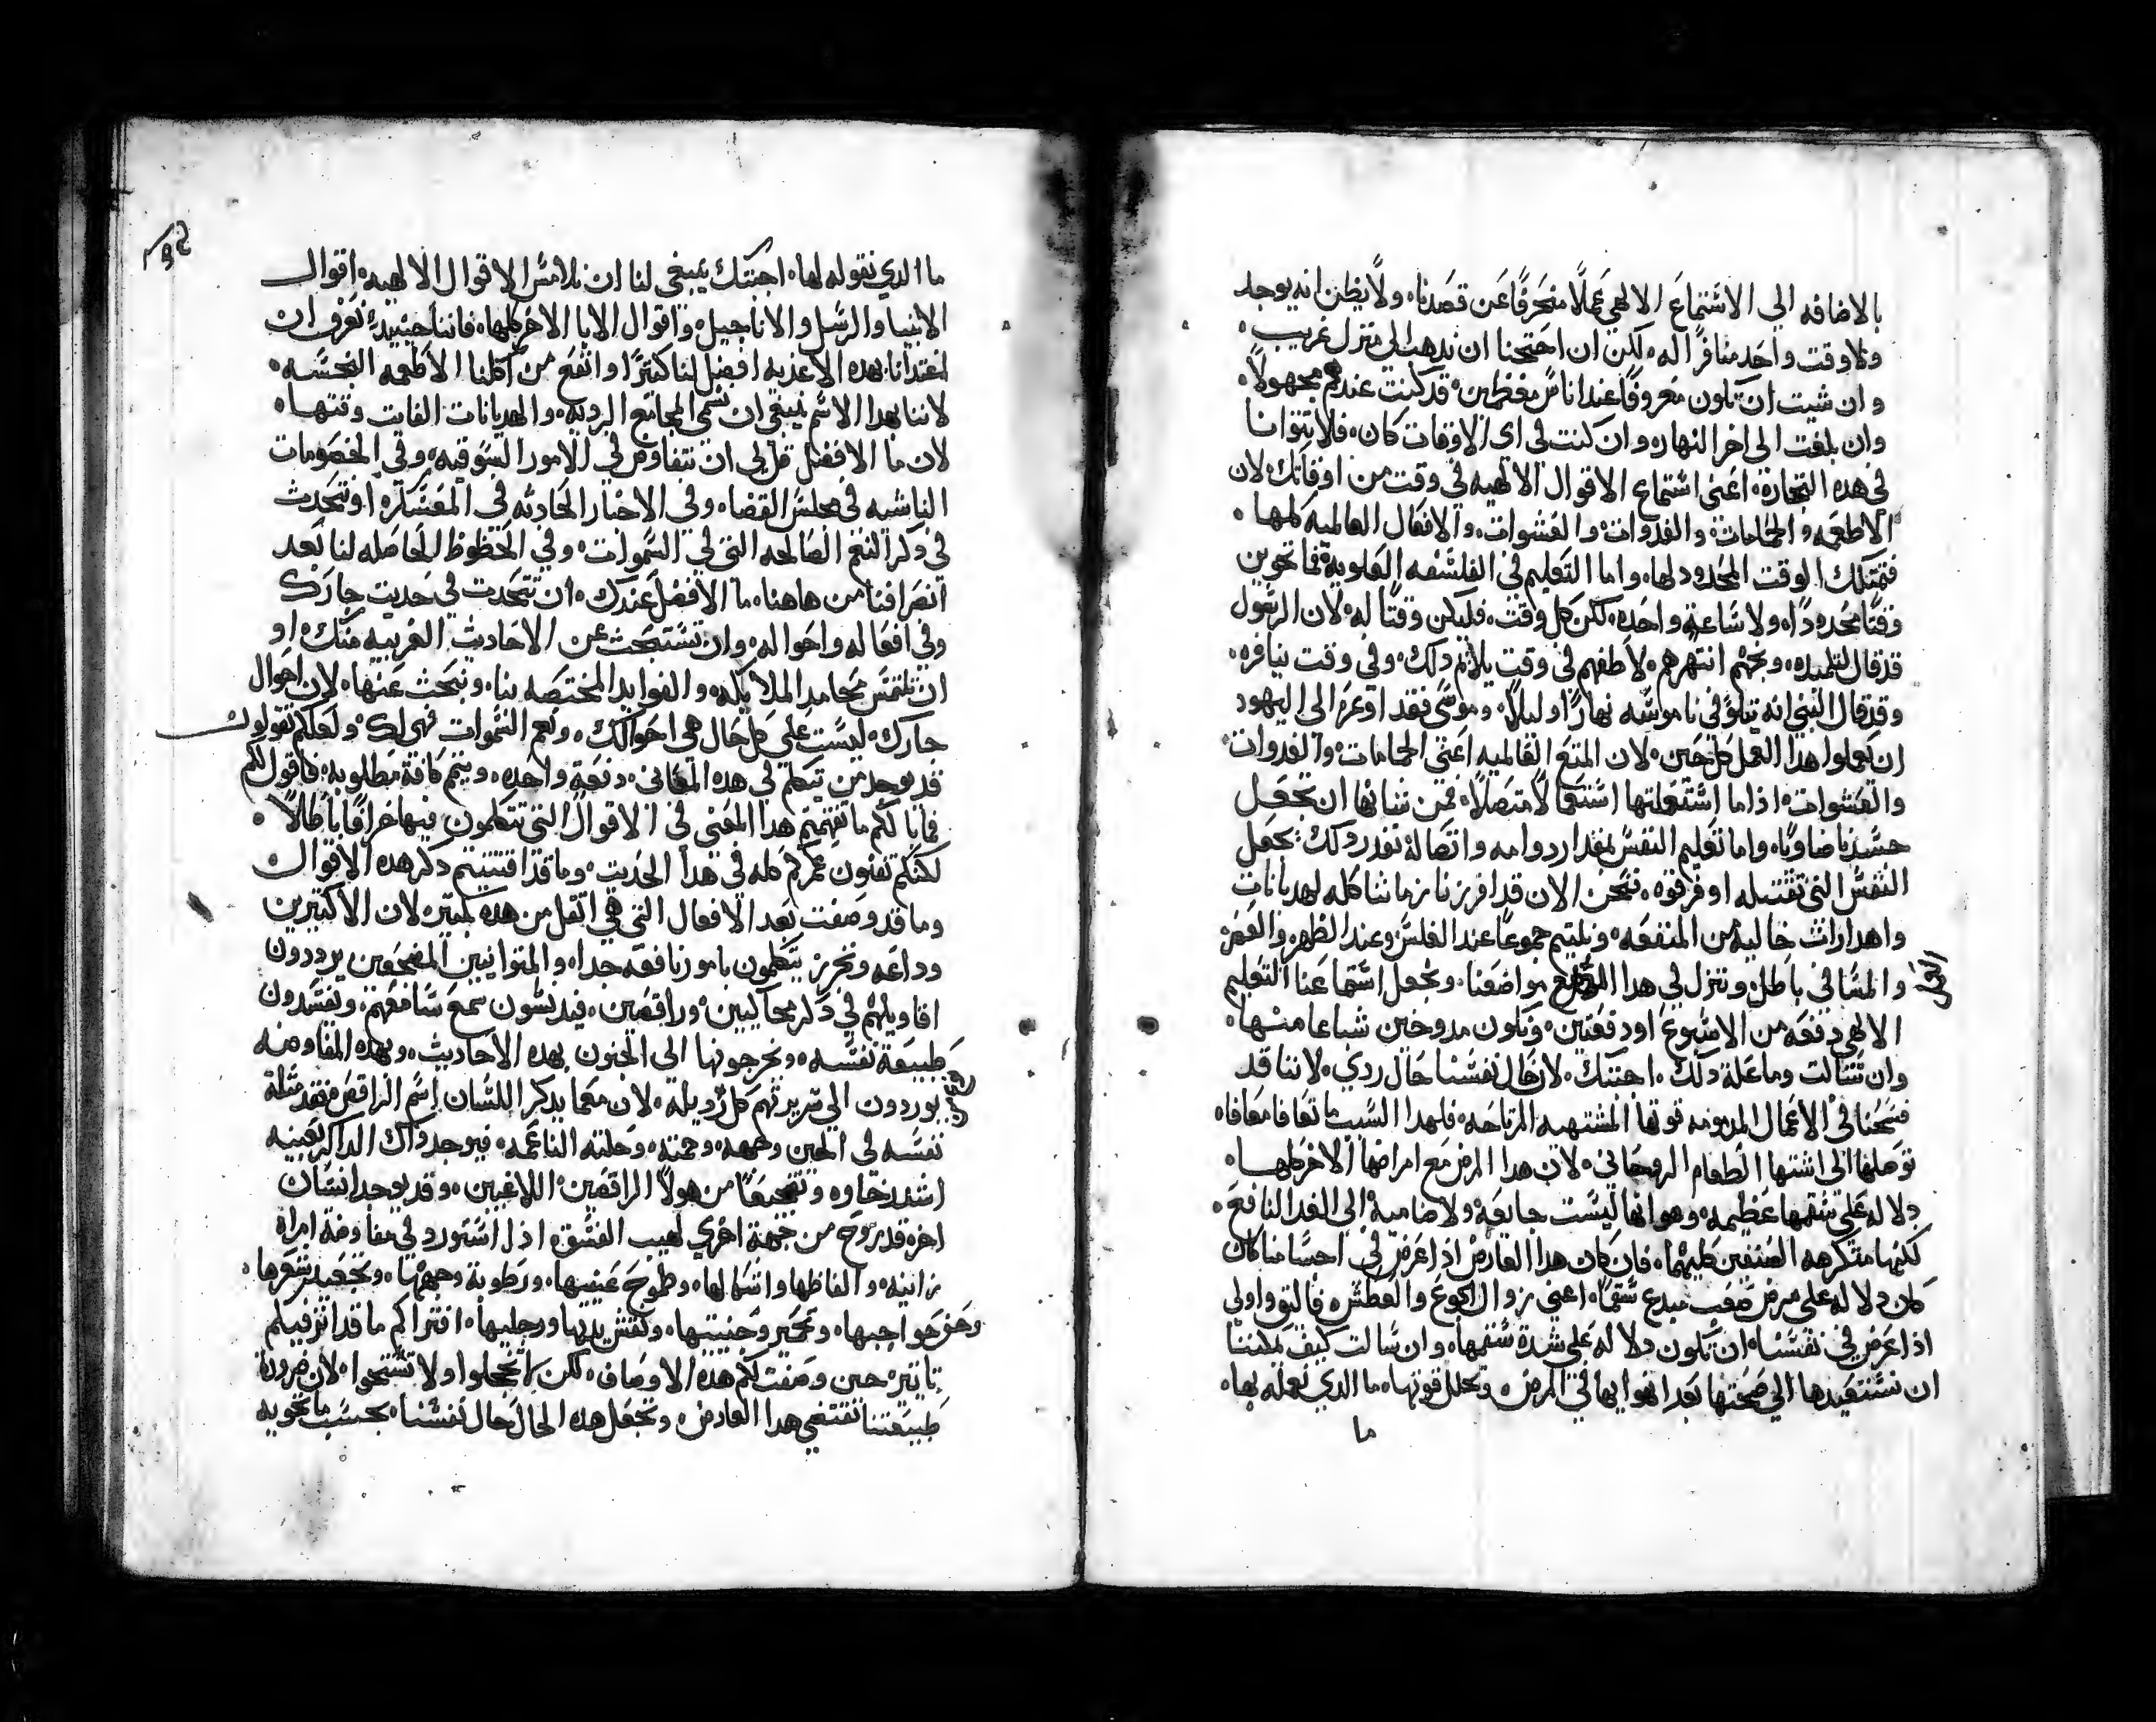 بالاضافه الي الاستماع الالهي عملًا منحرفًا عن قصدنا، ولا يظن انه يوجد
ولا وقت واحد منافرًا له، لكن ان احتجنا ان نذهب الي منزل غريب،
وان شيت ان تكون معروفًا عند اناس معظمين، قد كنت عندهم مجهولًا،
وان بلغت الي اخر النهار، وان كنت في اي الاوقات كان، فلا تتوانا
في هده التجارة، اعني استماع الاقوال الالهيه في وقت من اوقاتك، لان
الاطعمه والحمامات، والغدوات، والعشوات، والافعال العالميه كلها،
فتمتلك الوقت المحدود لها، واما التعليم في الفلسفه العلوية فما تحوين
وقتًا محدودًا، ولا ساعة واحده، لكن كل وقت، فليكن وقتًا له، لان الرسول
قد قال لتلميده، وبخهم انتهرهم، لاطفهم في وقت يلايم دلك، وفي وقت ينافره،
وقد قال النبي انه يتلو في ناموسه نهارًا وليلًا، وموسي فقد اوعز الي اليهود
ان يعملوا هدا العمل كل حين، لان المتع العالميه اعني الحمامات، والغدوات،
والعشوات، اذا ما استعملتها استعمالًا متصلًا، فمن شانها ان تجعل
جسدنا ضاويًا، واما تعليم النفس بمقدار دوامه واتصاله، بقدر دلك يجعل
النفس التي تقتبله اوفر قوه، فنحن الان قد افرزنا زماننا كله لهديانات
واهدارات خاليه من المنفعه، ونلتيم جموعًا عند الغلس وعند الظهر، والعصر
والمسا في باطل، وننزل في هدا مواضعنا، ونجعل استماعنا التعليم
العمل
الالهي دفعه من الاسبوع او دفعتين، ونكون مدوخين شباعا منها،
وان تسالت وما علة دلك، اجبتك، لان حال نفسنا حال ردي، لاننا قد
فسخنا في الاعمال المدمومه قوتها المشتهيه المرتاحه، فلهدا السبب ما تعافا معافاه
توصلها الي اشتها الطعام الروحاني، لان هدا المرض مع امراضها الاخر كلها،
دلاله علي سقمها عظيمه، وهو انها ليست جايعة ولا ضاميه الي الغدا النافع،
لكنها متكرهه الصنفين كليهما، فان كان هدا العارض اذا عرض في اجسامنا كان
كان دلاله علي مرض صعب مبدع سقمًا، اعني زوال الجوع والعطش، فاليق واولي
اذا عرض في نفسنا، ان تكون دلاله علي شدة سقمها، وان سالت كيف يمكننا
ان نستعيدها الي صحتها بعد انهوايها في المرض، وتحلل قوتها، ما الدي نعمله بها،
ما
ما الدي نقوله لها، اجبتك ينبغي لنا ان نلامس الاقوال الالهيه، اقوال
الانبيا والرسل والاناجيل، واقوال الابا الاخر كلها، فاننا حينيد نعرف ان
اغتدانا بهده الاغديه افضل لنا كثيرًا وانفع من اكلنا الاطعمه النجسه،
لاننا بهدا الاسم ينبغي ان نسمي المجامع الرديه، والهديانات الفايت وقتها،
لان ما الافضل قل لي ان نتفاوض في الامور السوقيه، وفي الخصومات
الناشيه في مجلس القضا، وفي الاخبار الحادثه في المعسكر، او نتحدث
في دكر النعم الصالحه التي في السموات، وفي الحظوظ الحاصله لنا بعد
انصرافنا من هاهنا، ما الافضل عندك، ان تتحدث في حديث جارك
وفي افعاله واحواله، وان تستبحث عن الاحاديث الغريبه منك، او
ان تلتمس محامد الملايكه، والفوايد المختصه بنا، وتبحث عنها، لان احوال
جارك، ليست علي كل حال هي احوالك، ونعم السموات فهي لك، ولعلكم تقولون
قد يوجد من يتكلم في هده المعاني، دفعة واحده، ويتمم كافة مطلوبه، فاقول لكم
فما بالكم ما تفهمتم هدا المعني في الاقوال التي تتكلمون فيها خرافًا باطلًا،
لكنكم تفنون عمركم كله في هدا الحديث، وما قد اقتنيتم دكر هده الاقوال
وما قد وصفت بعد الافعال التي هي اثقل من هده بكتير، لان الاكثيرين
وداعه وتحرز يتكلمون بامور نافعه جدا، والمتوانيين المضجعين يرددون
اقاويلهم في دكر محاكيين، وراقصين، فيدنسون سمع سامعهم، ويفسدون
طبيعة نفسه، ويخرجونها الي الجنون بهده الاحاديث، وبهده المفاوضه
يوردون الي سريرتهم كل رديله، لان معما يدكر اللسان اسم الراقص، فقد مثلة
نفسه في الحين وجهه، وجمته، وحلته الناعمه، فيوجد داك الداكر بعينه
اشد رخاوه من هولا الراقصين اللاعبين، وقد يوجد انسان
اخر، قد يروح من جهة اخري لهيب العشق، اذ استورد في مفاوضة امراه
زانيه، والفاظها واشكالها، وطموح عينيها، ورطوبة وجهها، وتجعيد شعرها،
وحف حواجبها، وتحمير وجنتيها، ونقش يديها ورجليها، افتراكم ما قد اثر فيكم
تاتيرًا حين وصفت لكم هده الاوصاف، لكن لا تخجلوا ولا تستحيوا، لان ضرورة
طبيعتنا تقتضي هدا العارض، وتجعل هده الحال حال نفسنا، بحسب ما تحويه